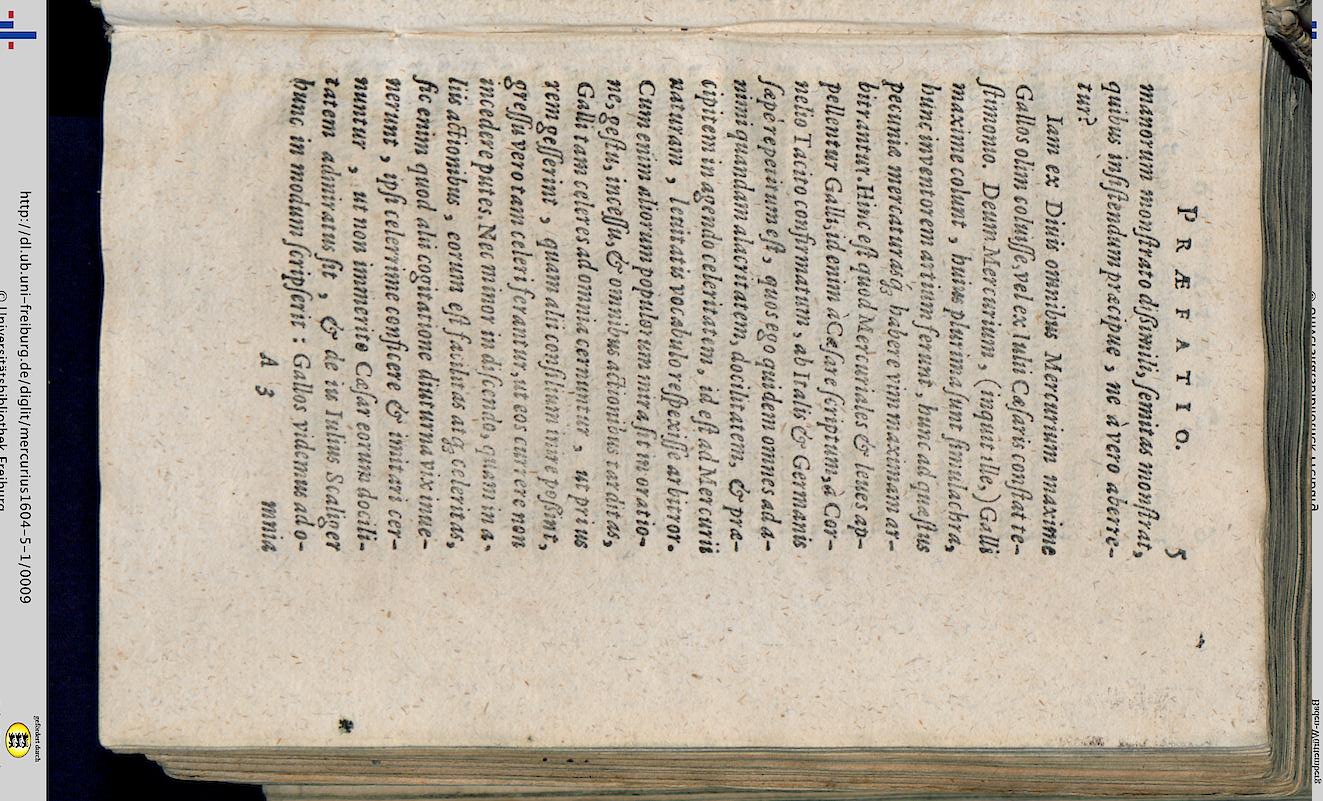 PRÆFATIO. 5
manorum monſtrato diſsimili, ſemitas monſtrat,
quibus inſiſtendum præcipue, ne à vero aberre-
tur?
Iam ex Diuis omnibus Mercurium maxime
Gallos olim coluiſſe, vel ex Iulii Cæſaris conſtat te-
ſtimonio. Deum Mercurium, (inquit ille,) Galli
maxime colunt, huius plurima ſunt ſimulachra,
hunc inventorem artium ferunt, hunc ad quæſtus
pecuniæ mercaturasq; habere vim maximam ar-
bitrantur. Hinc eſt quod Mercuriales & leues ap-
pellentur Galli, id enim à Cæſare ſcriptum, à Cor-
nelio Tacito confirmatum, ab Italis & Germanis
ſæpe repetitum eſt, quos ego quidem omnes ad a-
nimi quandam alacritatem, docilitatem, & præ-
cipitem in agendo celeritatem, id eſt ad Mercurii
naturam, leuitatis vocabulo reſpexiſſe arbitror.
Cum enim aliorum populorum mira ſit in oratio-
ne, geſtu, inceſſu, & omnibus actionibus tarditas,
Galli tam celeres ad omnia cernuntur, ut prius
rem geſſerint, quam alii conſilium inire poſsint,
greſſu vero tam celeri ferantur, ut eos currere non
incedere putes. Nec minor in diſcendo, quam in a-
liis actionibus, eorum eſt facilitas atq; celeritas,
ſic enim quod alii cogitatione diuturna vix inue-
nerunt, ipſi celerrime conficere & imitari cer-
nuntur, ut non immerito Cæſar eorum docili-
tatem admiratus ſit, & de iis Iulius Scaliger
hunc in modum ſcripſerit: Gallos videmus ad o-
A 3 mnia
http://dl.ub.uni-freiburg.de/diglit/mercurius1604-5-1/0009
© Universitätsbibliothek Freiburg
gefördert durch